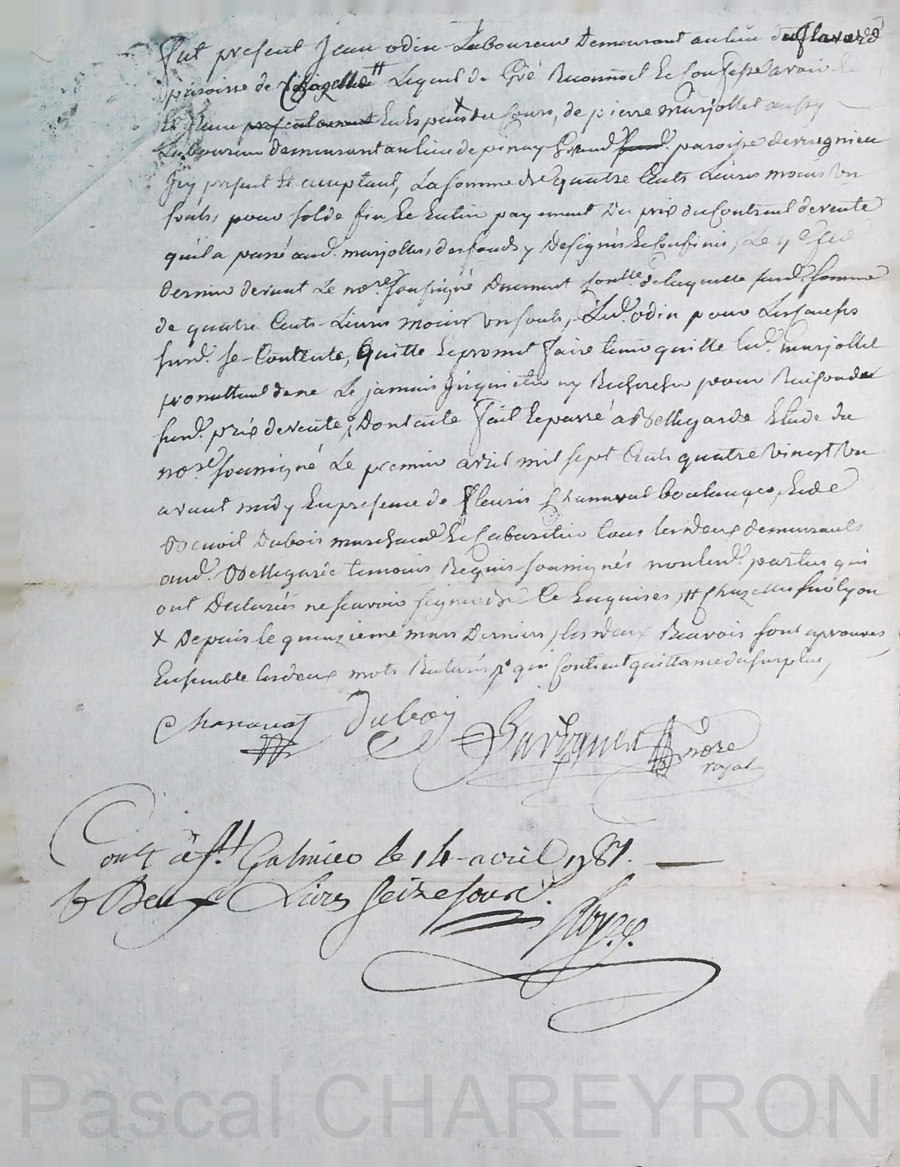 Fut present Jean odin Laboureur Demeurant au lieu du
paroisse de Chazelle # Lequel de Gré Reconnoit Et Confesse avoir
Et Reçu En Espèces du Cours, de pierre marjollet aussy
Laboureur demeurant au lieu de paroisse de
Icy present Et acceptant, La somme de quatre Cents Livres moins un
souls, pour solde fin Et Entier payement Du prix du Contract de vente
qu'il a passé aud. marjollet, des fonds y Designés Et Confinés, Le
dernier devant Le no.re soussigné Duement de laquelle susd. somme
de quatre Cents Livres moins un souls, Led. odin pour Les causes
susd. se Contente, Quitte Et promet faire tenir quitte led. marjollet
promettant de ne Le jamais Inquieter ny Rechercher pour Raison du
susd. prix de vente, Dont acte fait Et passé a Bellegarde Etude du
no.re soussigné Le premier avril mil sept Cents quatre vingt un
avant midy En presence de fleuris Chanavat boulanger, Et de
Benoit Dubois marchand Et Cabaretier tous les deux demeurants
aud. Bellegarde temoins Requis soussignés non lesd. parties qui
ont Declarés ne scavoir signer de ce Enquises, # Chazelles sur lyon
x Depuis le quinzieme mars Dernier, les deux Renvois sont aprouvés
Ensemble les deux mots Raturés, qui contient quittance du surplus,
Chanavat Dubois no.re
royal
Con.lé à S.t Galmier le 14 avril 1781.
R Deux Livres seize sous.
Pascal CHAREYRON